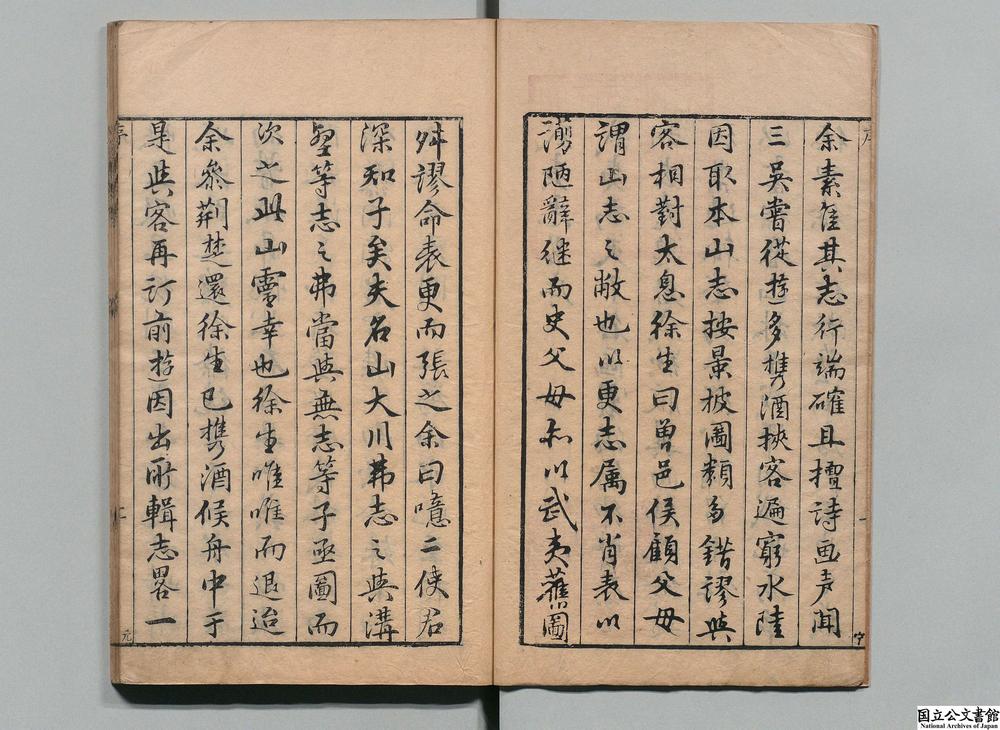 序
余素隹其志行端確且擅詩画声聞
三吳嘗從遊多携酒挾客遍窮水陸
因取本山志按景披圖類多錯謬與
客相對太息徐生曰曽邑侯顧父母
謂山志之敝也以更志属不肖表以
譾陋辭継而史父母亦以武夷舊圖
舛謬命表更而張之余曰噫二侯君
深知子矣夫名山大川弗志之與溝
壑等志之弗當與無志等子亟圖而
次之此山靈幸也徐生唯唯而退迨
余叅荆楚還徐生已携酒候舟中于
是與客再订前遊因出所輯志畧一
序
二
元
国立公文書館
National Archives of Japan